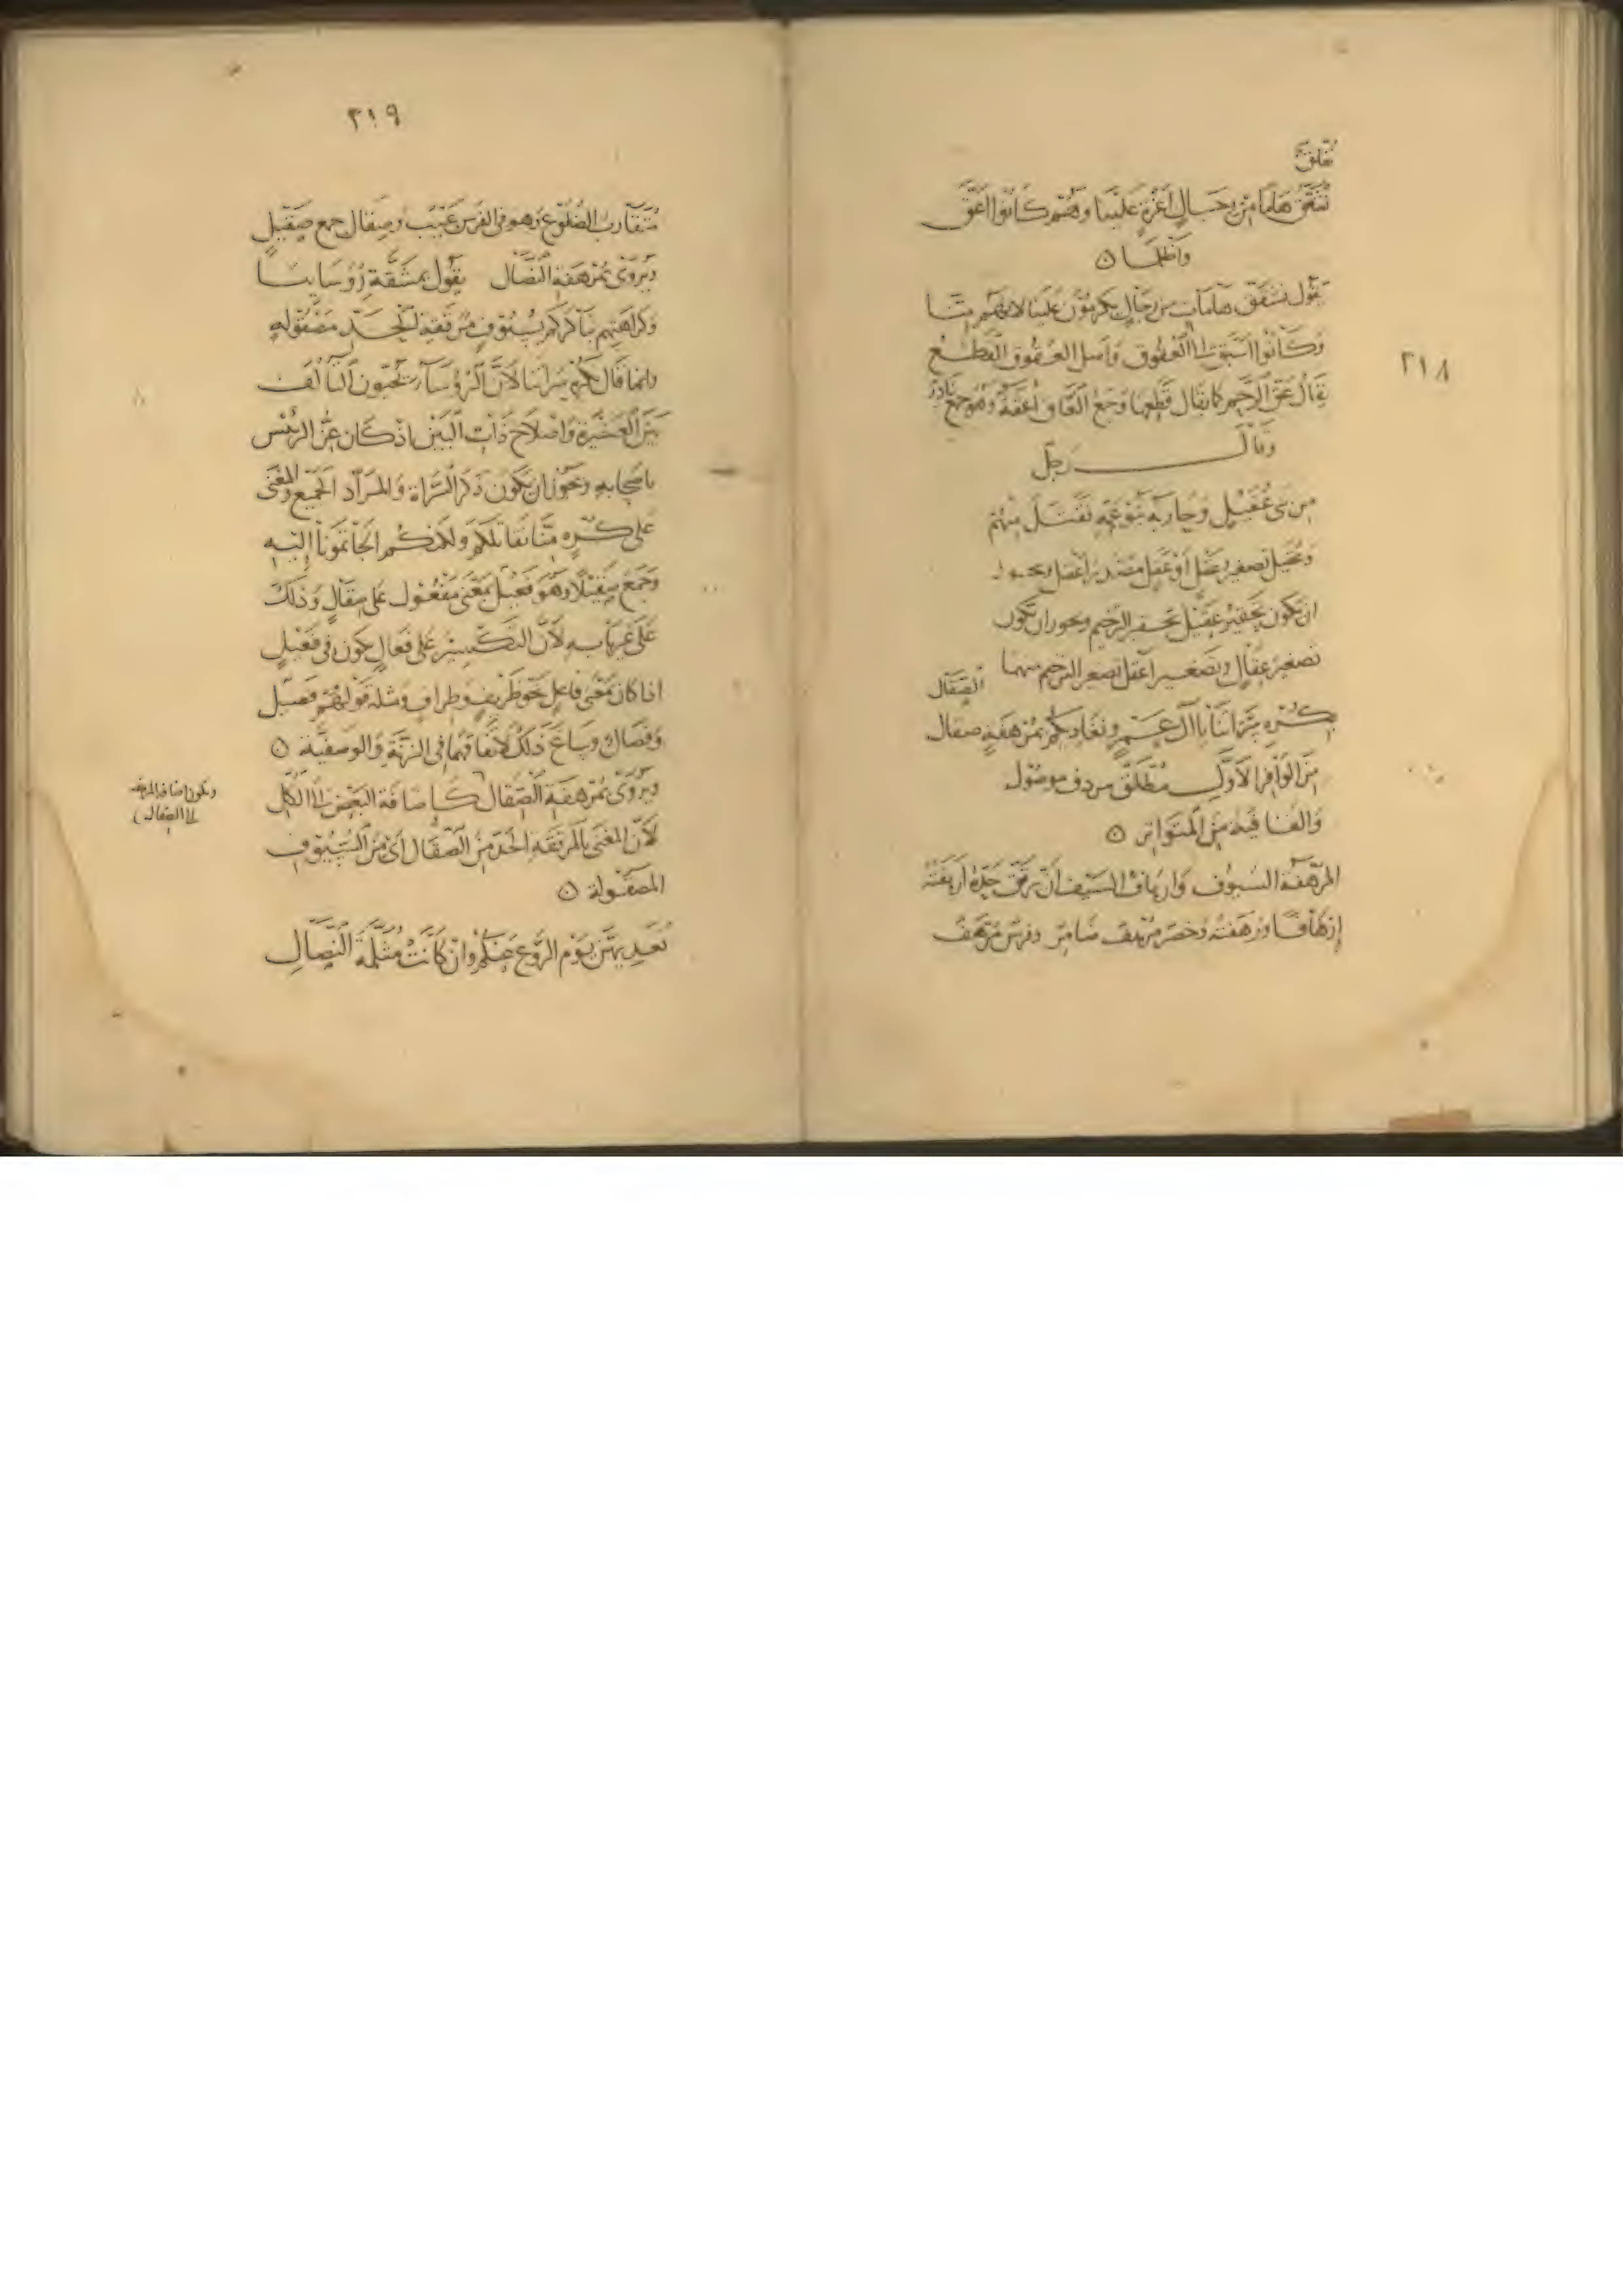 نفلق
نفلق هاما من رجال أعزة علينا وهم كانوا أعق
وأظلما ۞
يقول نشقق هامات من رجال يكرمون علينا لانهم منا
وكانوا أسبق الى العقوق وأصل العقوق القطع
يقال عق الرحم كما يقال قطعها وجمع العاق أعقة وهو جمع نادر
وقال رجل
من بنى عقيل وحاربه بنو عمه فقتل منهم
وعقيل تصغير عقل أو عقل مصدر أعقل ويجوز
ان يكون تحقير عقيل تحقير الترخيم ويجوز ان يكون
تصغير عقال وتصغير أعقل تصغير الترخيم فيهما
الصقال
بكره سراتنا يا آل عمرو نغاديكم بمرهفة صقال
من الوافر الأول مطلق مردف موصول
والقافية من المتواتر ۞
المرهفة السيوف وارهاف السيف ان ترقق حده أرهفته
إرهافا ورهفته وخصر مرهف ضامر وفرس مرهف
٢١٨
٢١٩
متقارب الضلوع وهو فى الفرس عيب وصقال جمع صقيل
ويروى بمرهفة النصال يقول بمشقة رؤسائنا
وكراهتهم نباكركم بسيوف مرققة الحد مصقولة
وانما قال بكره سراتنا لأن الرؤساء يحبون التألف
بين العشيرة واصلاح ذات البين اذ كان عز الرئيس
بأصحابه ويجوز ان يكون ذكر السراة والمراد الجميع والمعنى
على كره منا نقاتلكم ولكنكم ألجأتمونا إليه
وجمع صقيلا وهو فعيل بمعنى مفعول على صقال وذلك
على غير بابه لأن التكسير على فعال يكون فى فعيل
اذا كان بمعنى فاعل نحو ظريف وظراف ومثله قولهم فصيل
وفصال وساغ ذلك لاتفاقهما فى الزنة والوصفية ۞
ويروى بمرهفة الصقال كاضافة البعض الى الكل
لأن المعنى بالمرققة الحد من الصقال أى من السيوف
المصقولة ۞
نعديهن يوم الروع عنكم وان كانت مثلمة النصال
وتكون اضافة المرهفة
الى الصقال